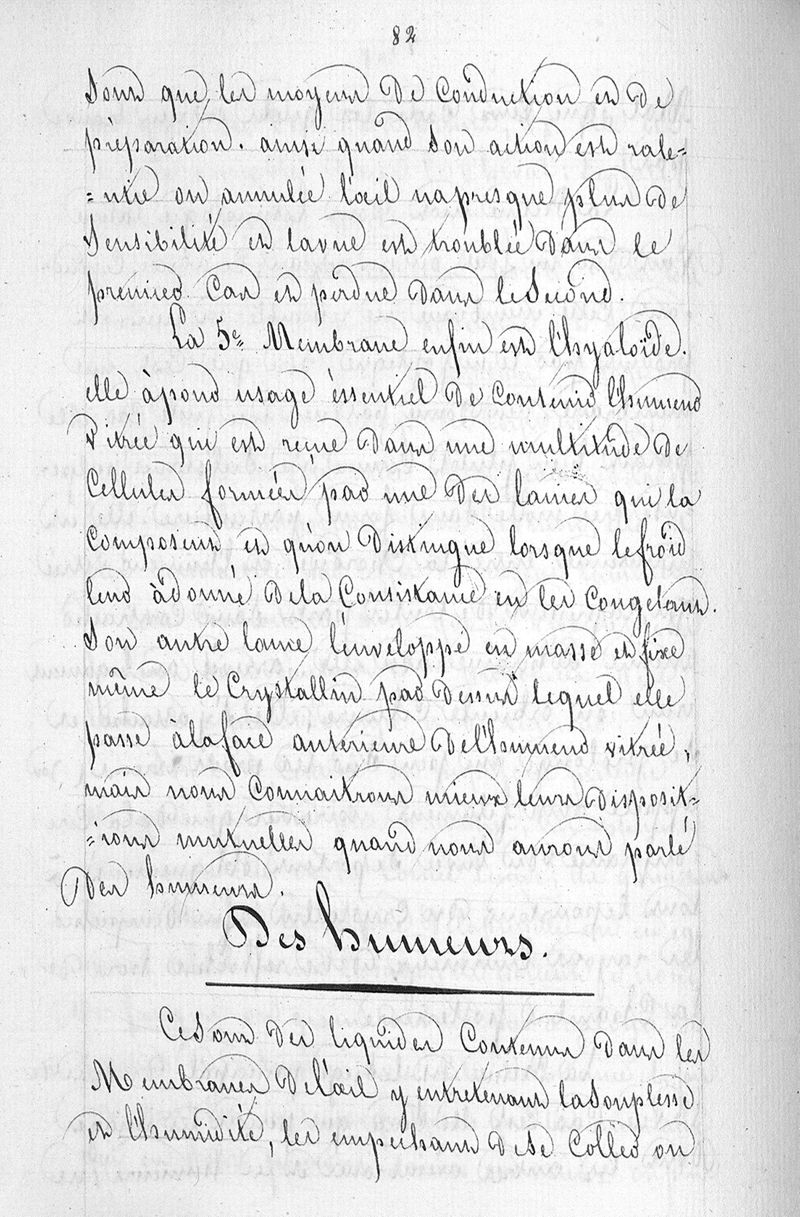 82
sont que les moyens de conduction et de
préparation. aussi quand son action est rale=
=ntie ou annulée l'œil n'a presque plus de
sensibilité et la vue est troublée dans le
premier cas et perdue dans le second.
La 5e Membrane enfin est l'hyaloïde.
elle à pour usage éssentiel de contenir l'humeur
vitrée que est reçue dans une multitude de
cellules formées par une des lames qui la
composent et qu'on distingue lorsque le froid
leur à donné de la consistance en les congelant.
Son autre lame l'enveloppe en masse et fixe
même le Crystallin par dessus lequel elle
passe à la face antérieure de l'humeur vitrée,
mais nous connaitrons mieux leurs disposit=
=ions mutuelles quand nous aurons parlé
des humeurs.
Des humeurs.
Ce sont des liquides contenus dans les
Membranes de l'œil y entretenant la souplesse
et l'humidité, les empêchant de se coller ou